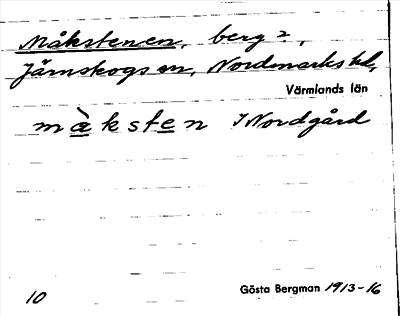 Måkstenen, berg?,
Järnskogs sn, Nordmarks hd,
Värmlands län
màksten Nordgård
10 Gösta Bergman 1913-16